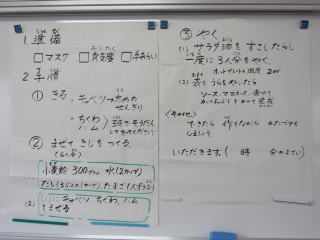 1. 準備
□マスク □身支度 □手あらい
2. 手順
① きる。 キャベツ→太めの
せんぎり
ちくわ
ハム
② まぜて きじをつくる。
小麦粉 300グラム 水(2カップ)
だし たまご
(2) (1)に キャベツ ちくわ、ハム
をまぜる
③ やく
(1) サラダ油を すこしたらし
一度に 3人分をやく。
ホットプレートの温度
(2) 表と うらをやいたら
ソース、マヨネーズ、青のり
かつおぶしをかけて 完成
できたら 作りながら かたづけも
しましょう。
いただきます。( 時 分のよてい)